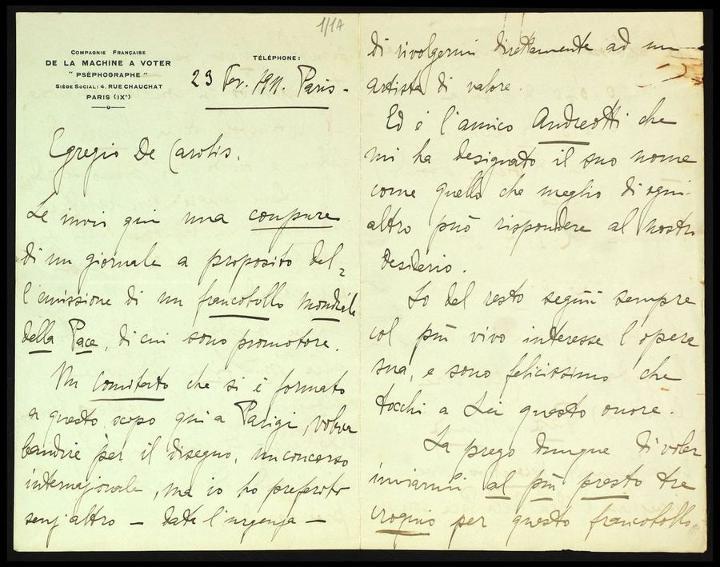 1/1A
COMPAGNIE FRANÇAISE
DE LA MACHINE A VOTER
"PSÉPHOGRAPHE"
SIÈGE SOCIAL: 4, RUE CHAUCHAT
PARIS (IXᵉ)
TÉLÉPHONE:
23 911. Paris-
Egregio De Carolis.
Le invio qui una coupure
di un giornale a proposito del-
l'emissione di un francobollo mondiale
della Pace, di cui sono promotore.
Un Comitato che si è formato
a questo scopo qui a Parigi, voleva
bandire per il disegno, un concorso
internazionale, ma io ho preferito
senz'altro - data l'urgenza -
di rivolgermi direttamente ad un
artista di valore.
Ed è l'amico Andreotti che
mi ha designato il suo nome
come quello che meglio di ogni
altro può rispondere al nostro
desiderio.
Io del resto seguii sempre
col più vivo interesse l'opera
sua, e sono felicissimo che
tocchi a Lei questo onore.
La prego dunque di voler
inviarmi al più presto tre
croquis per questo francobollo,